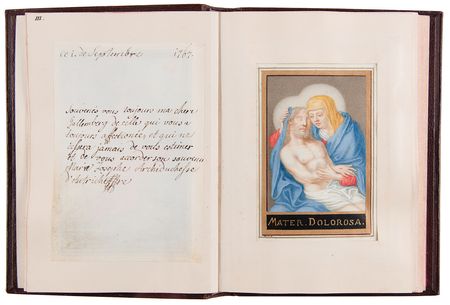 III.
ce 2 de Septembre 1767.
souvenés vous toujours ma chere
de celle qui vous a
toujours affectionée, et qui ne
cessera jamais de vous estimer
et de vous accorder son souvenir
Marie Josephe Archiduchesse
d'Autriche
MATER. DOLOROSA.